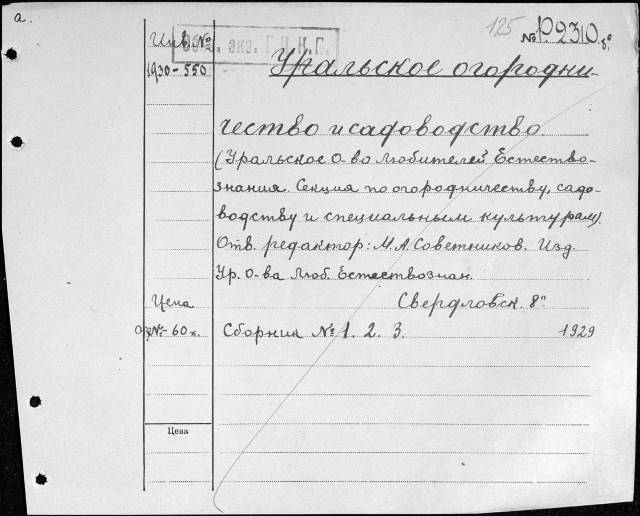 а.
125
№ Р2310 8°
Инв. №
Обяз. экз. Г.Ц.К.П.
1930-550
Уральское огородни-
чество и садоводство.
(Уральское О-во Любителей Естество-
знания. Секция по огородничеству, садо-
водству и специальным культурам).
Отв. редактор: М.А. Советников. Изд.
Ур. О-ва Люб. Естествознан.
Цена
Свердловск. 8°
№- 60 к.
Сборник № 1. 2. 3.
1929
Цена